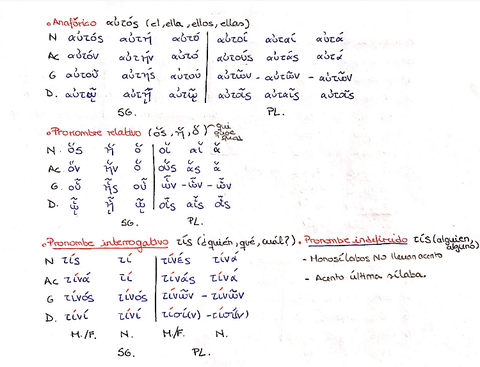 • Anafórico αὐτός (el, ella, ellos, ellas)
N αὐτός αὐτή αὐτό αὐτοί αὐταί αὐτά
Ac αὐτόν αὐτήν αὐτό αὐτούς αὐτάς αὐτά
G αὐτοῦ αὐτῆς αὐτοῦ αὐτῶν - αὐτῶν - αὐτῶν
D. αὐτῷ αὐτῇ αὐτῷ αὐτοῖς αὐταῖς αὐτοῖς
SG. PL.
• Pronombre relativo (ὅς, ἥ, ὅ) qui quae quod
N. ὅς ἥ ὅ οἵ αἵ ἅ
Ac ὅν ἥν ὅ οὕς ἅς ἅ
G. οὗ ἧς οὗ ὧν - ὧν - ὧν
D. ᾧ ᾗ ᾧ οἷς αἷς οἷς
SG. PL.
• Pronombre interrogativo τίς (¿quién, qué, cuál?). Pronombre indefinido τίς (alguien, alguno)
N τίς τί τίνές τίνά - Monosílabos No llevan acento
Ac τίνά τί τίνάς τίνά - Acento última sílaba.
G τίνός τίνός τίνῶν - τίνῶν
D. τίνί τίνί τίσί(ν) - τίσί(ν)
M./F. N. M./F. N.
SG. PL.